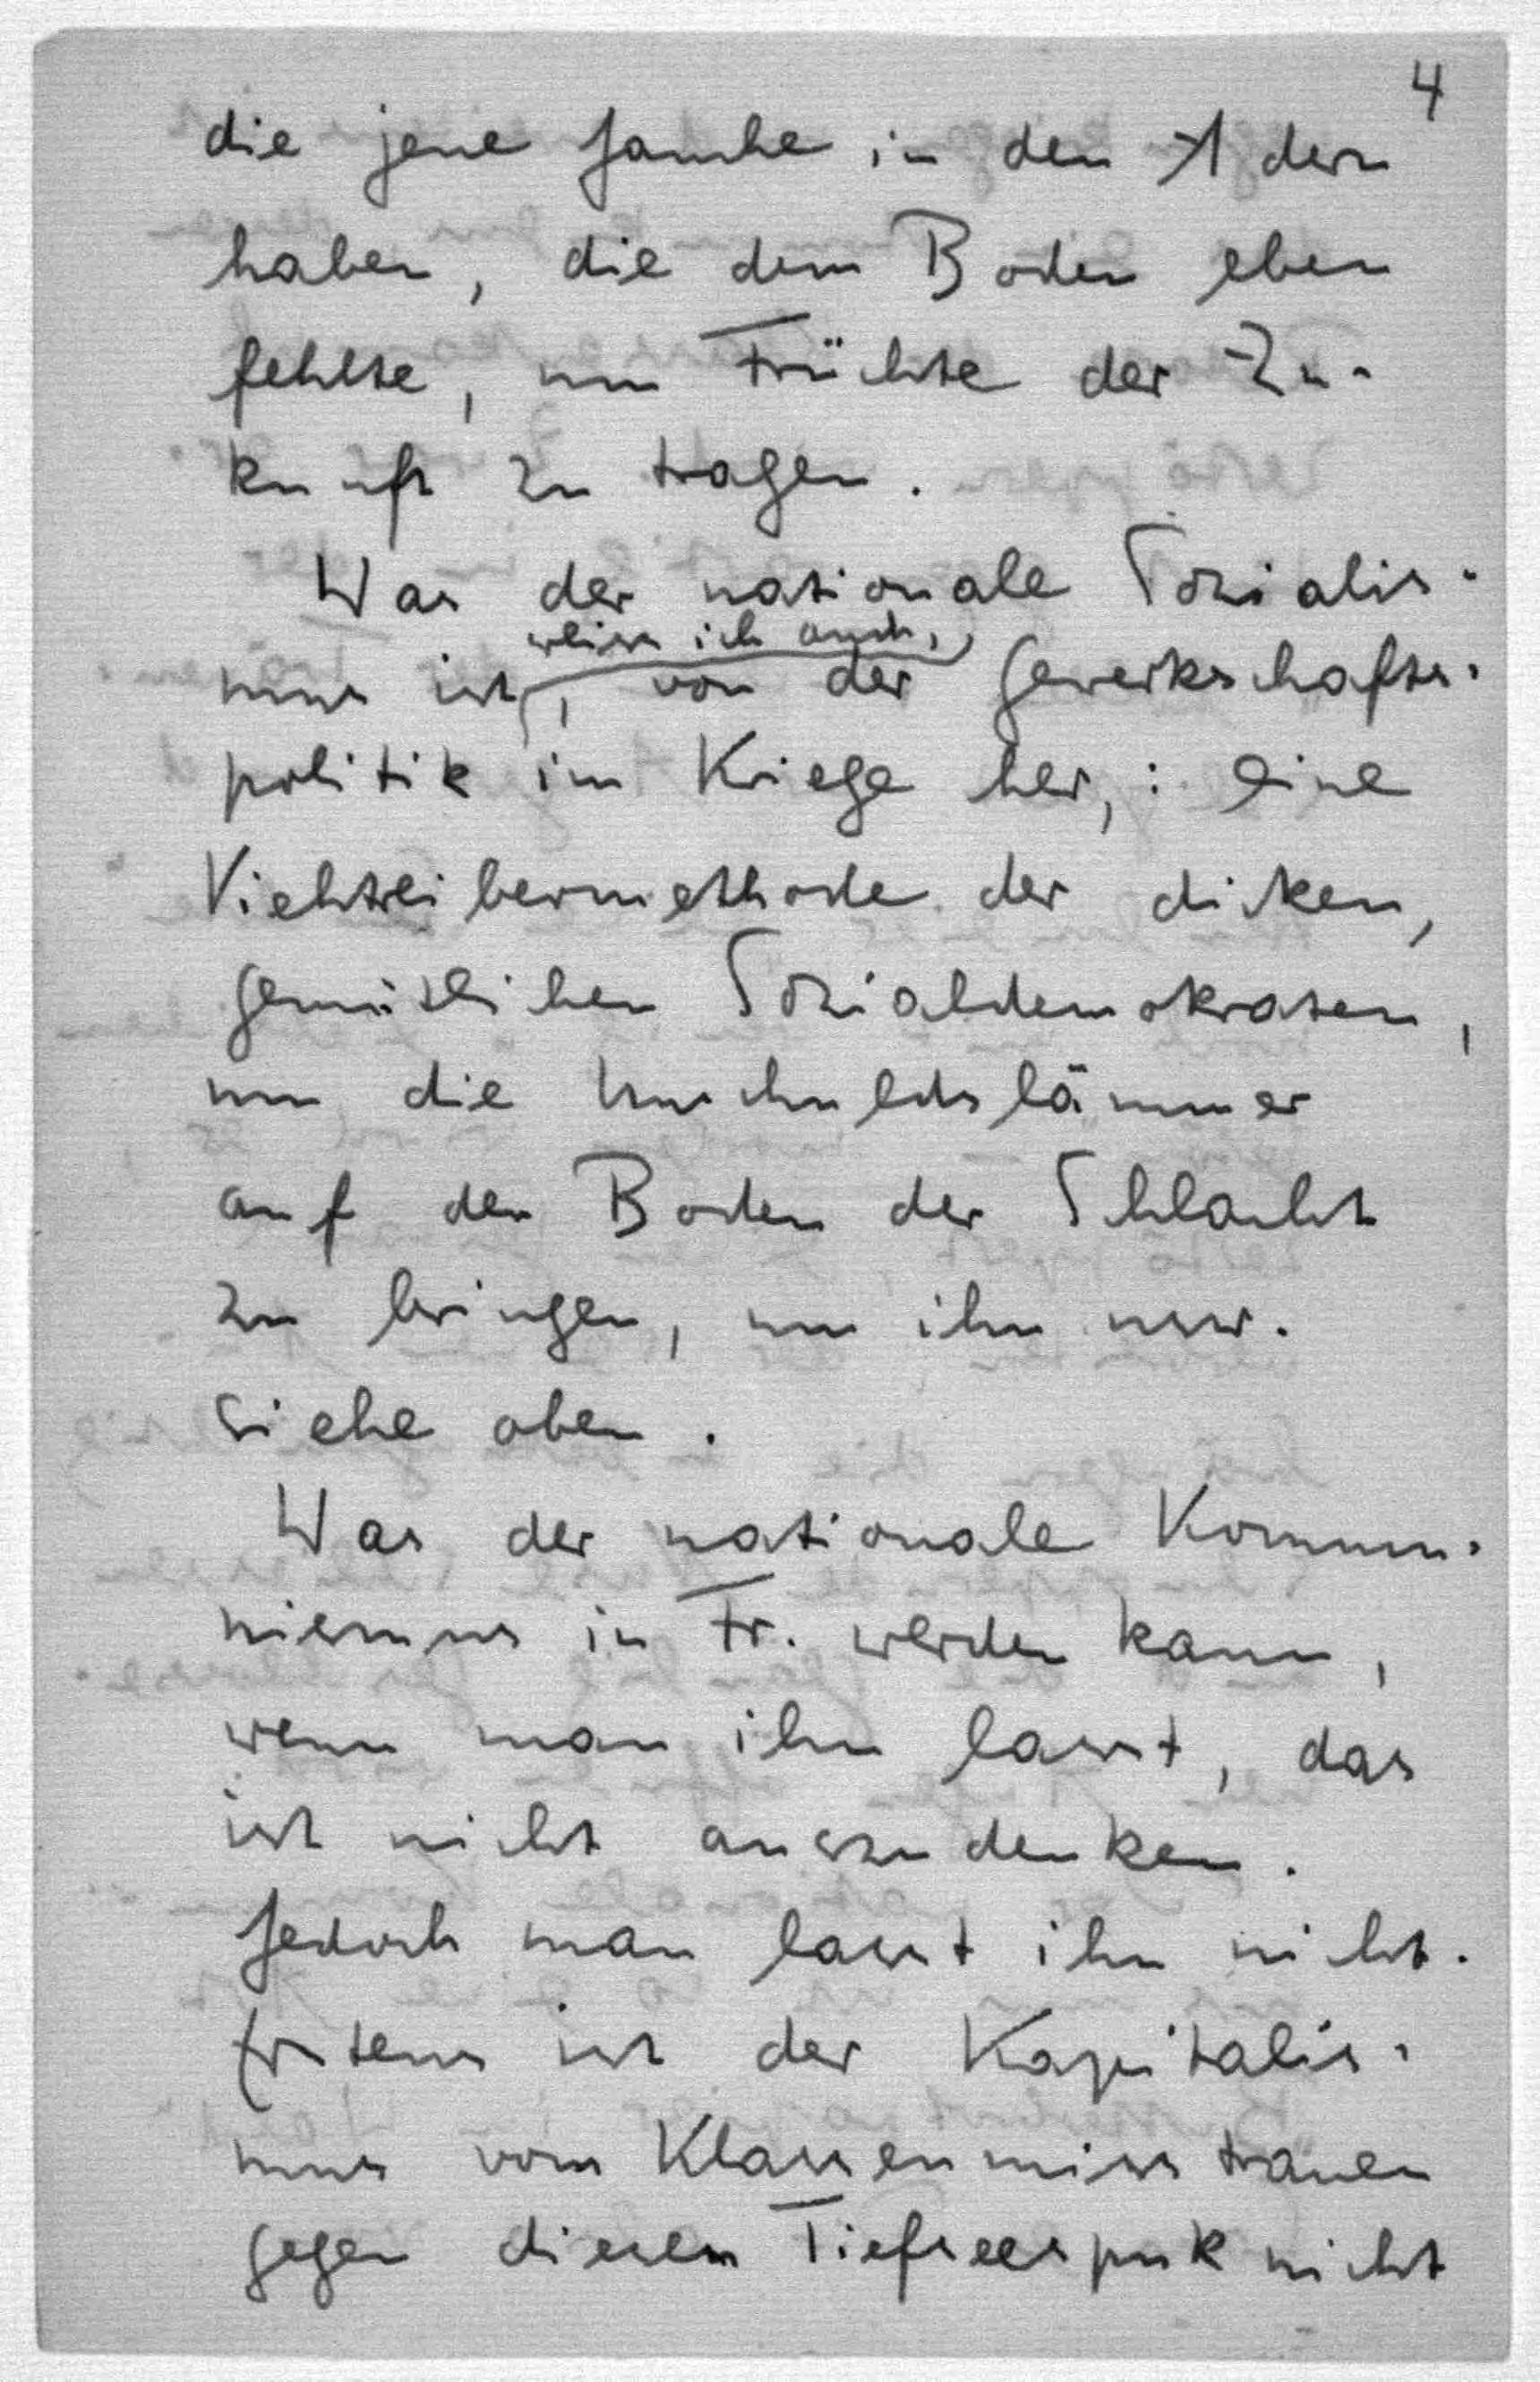 4
die jene Jauche in den Adern
haben, die dem Boden eben
fehlte, um Früchte der Zu-
kunft zu tragen.
Was der nationale Sozialis-
weiss ich auch,
mus ist, von der Gewerkschafts-
politik im Kriege her,: eine
Viehtreibermethode der dicken,
gemütlichen Sozialdemokraten,
um die Unschuldslämmer
auf den Boden der Schlacht
zu bringen, um ihn usw.
siehe oben.
Was der nationale Kommu-
nismus in Fr. werden kann,
wenn man ihn lasst, das
ist nicht auszudenken.
Jedoch man lasst ihn nicht.
Erstens ist der Kapitalis-
mus vom Klassenmisstrauen
gegen diesen Tiefseespuk nicht